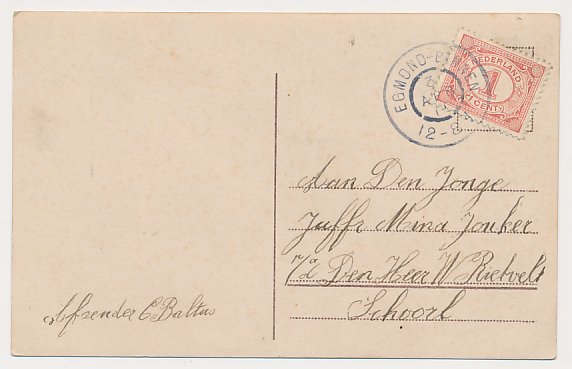 EGMOND-BINNEN
12-8
NEDERLAND
1
CENT
Aan Den Jonge
Juffr Mina Jonker
p/a Den Heer W Rietvelt
Schoorl
Afzender C. Baltus